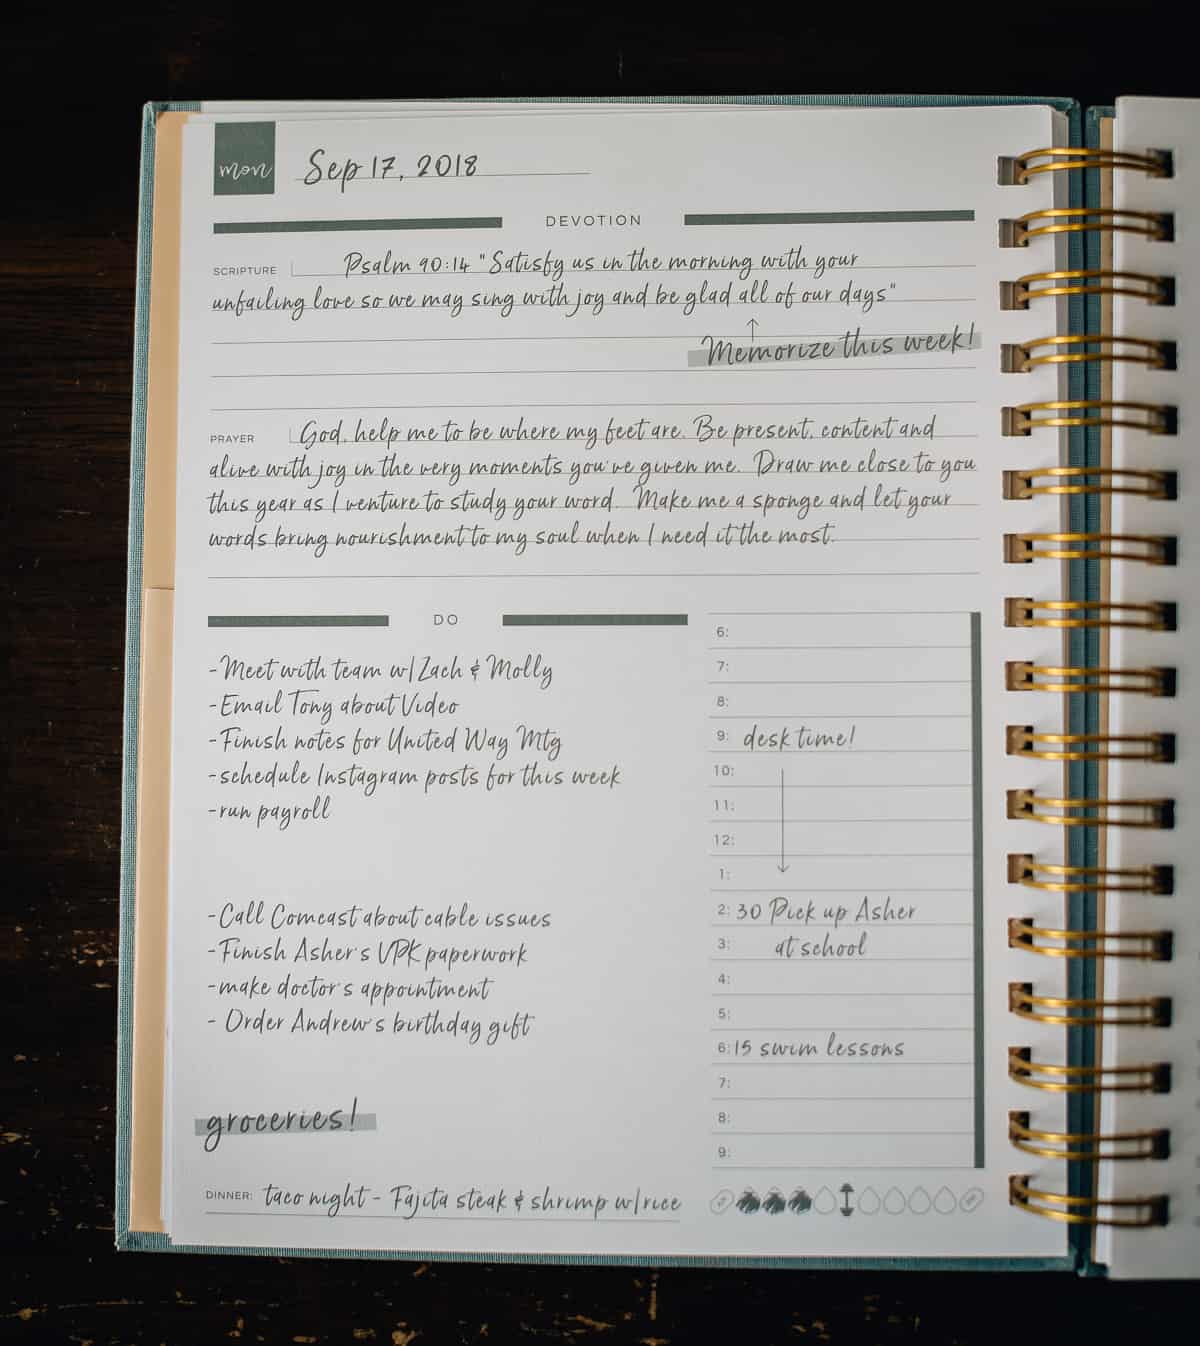 mon
Sep 17, 2018
DEVOTION
SCRIPTURE Psalm 90:14 "Satisfy us in the morning with your
unfailing love so we may sing with joy and be glad all of our days"
Memorize this week!
PRAYER God, help me to be where my feet are. Be present, content and
alive with joy in the very moments you've given me. Draw me close to you
this year as I venture to study your word. Make me a sponge and let your
words bring nourishment to my soul when I need it the most.
DO
-Meet with team w/Zach & Molly
-Email Tony about Video
-Finish notes for United Way Mtg
-schedule Instagram posts for this week
-run payroll
-Call Comcast about cable issues
-Finish Asher's VPK paperwork
-make doctor's appointment
- Order Andrew's birthday gift
groceries!
DINNER: taco night - Fajita steak & shrimp w/rice
6:
7:
8:
9: desk time!
10:
11:
12:
1:
2: 30 Pick up Asher
3: at school
4:
5:
6:15 swim lessons
7:
8:
9: